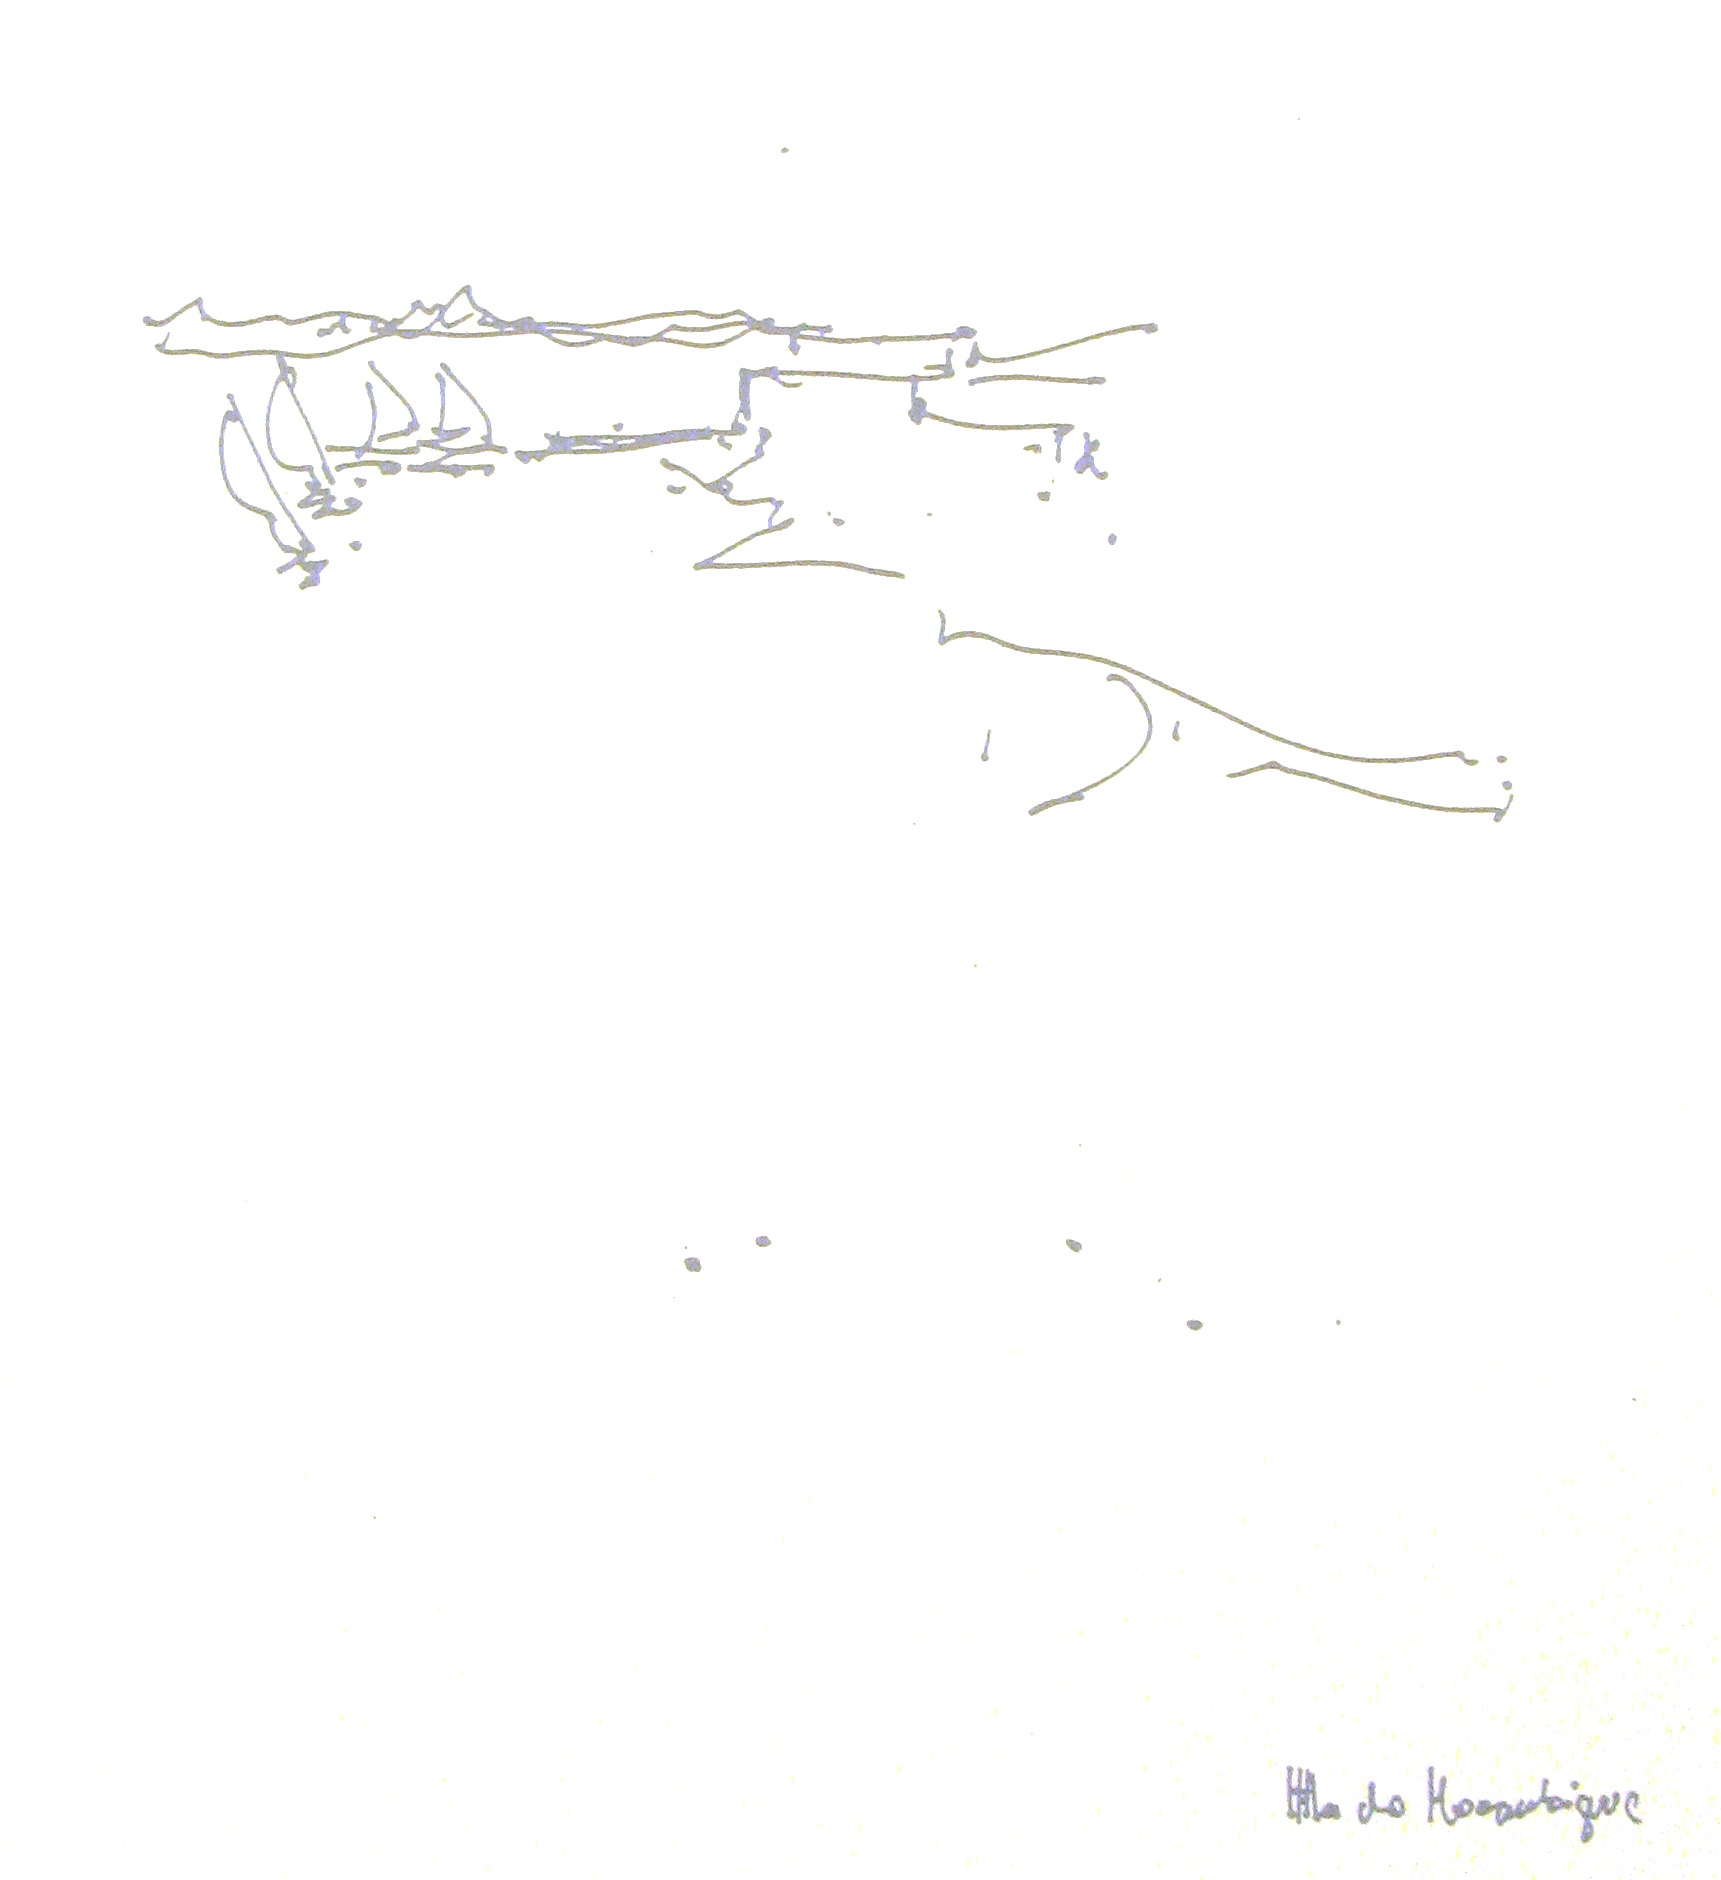 Ilha do Moçambique